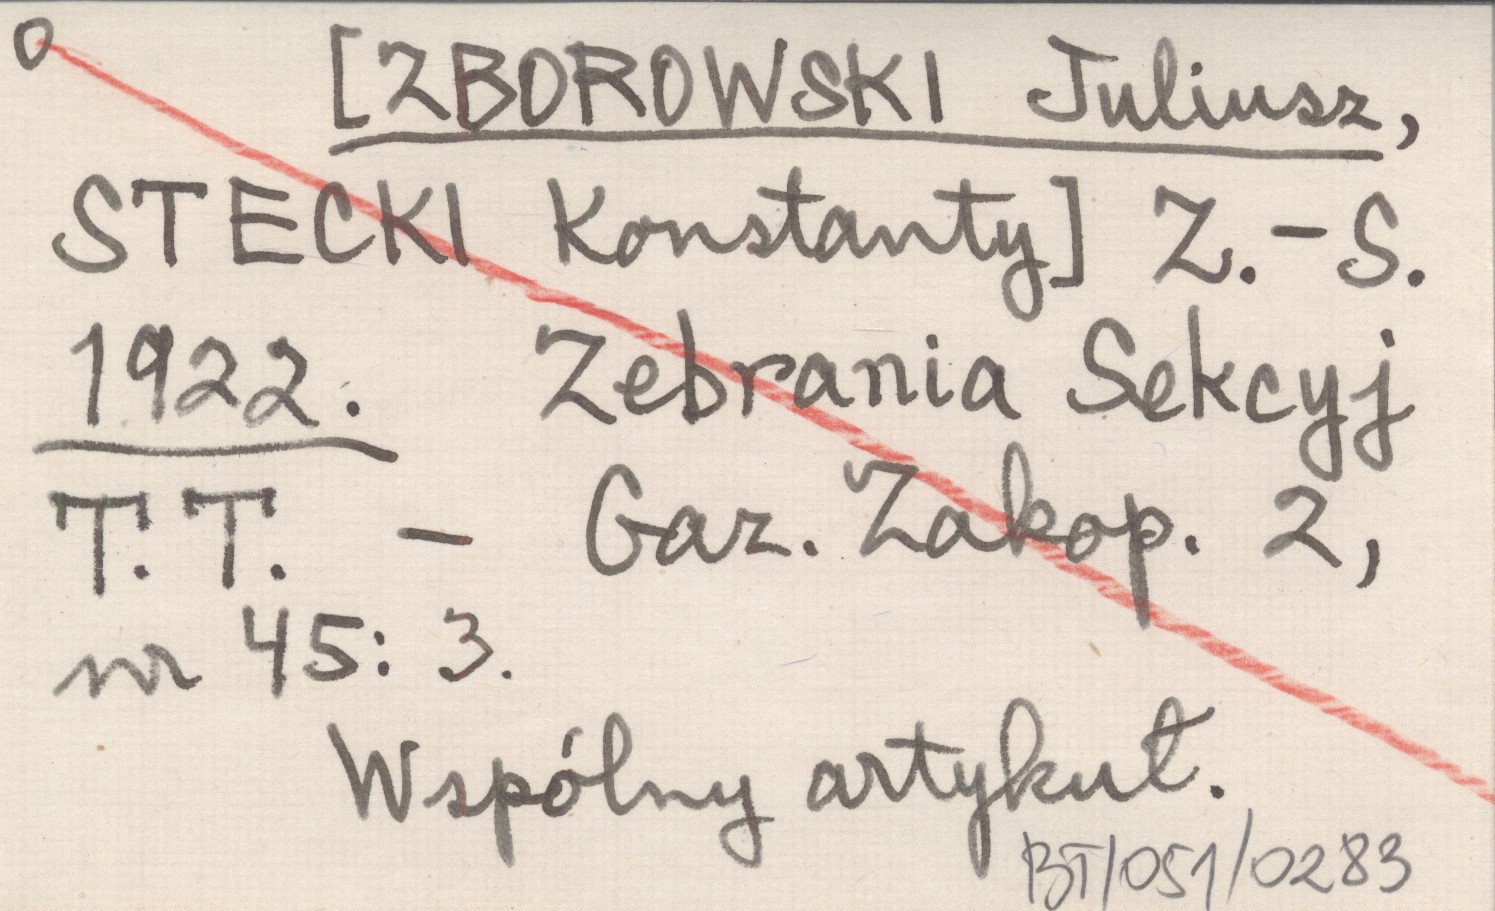 [ZBOROWSKI Juliusz,
STECKI Konstanty] Z.-S.
1922. Zebrania Sekcyj
T.T. - Gaz. Zakop. 2,
nr 45: 3.
Wspólny artykuł.
BT/051/0283